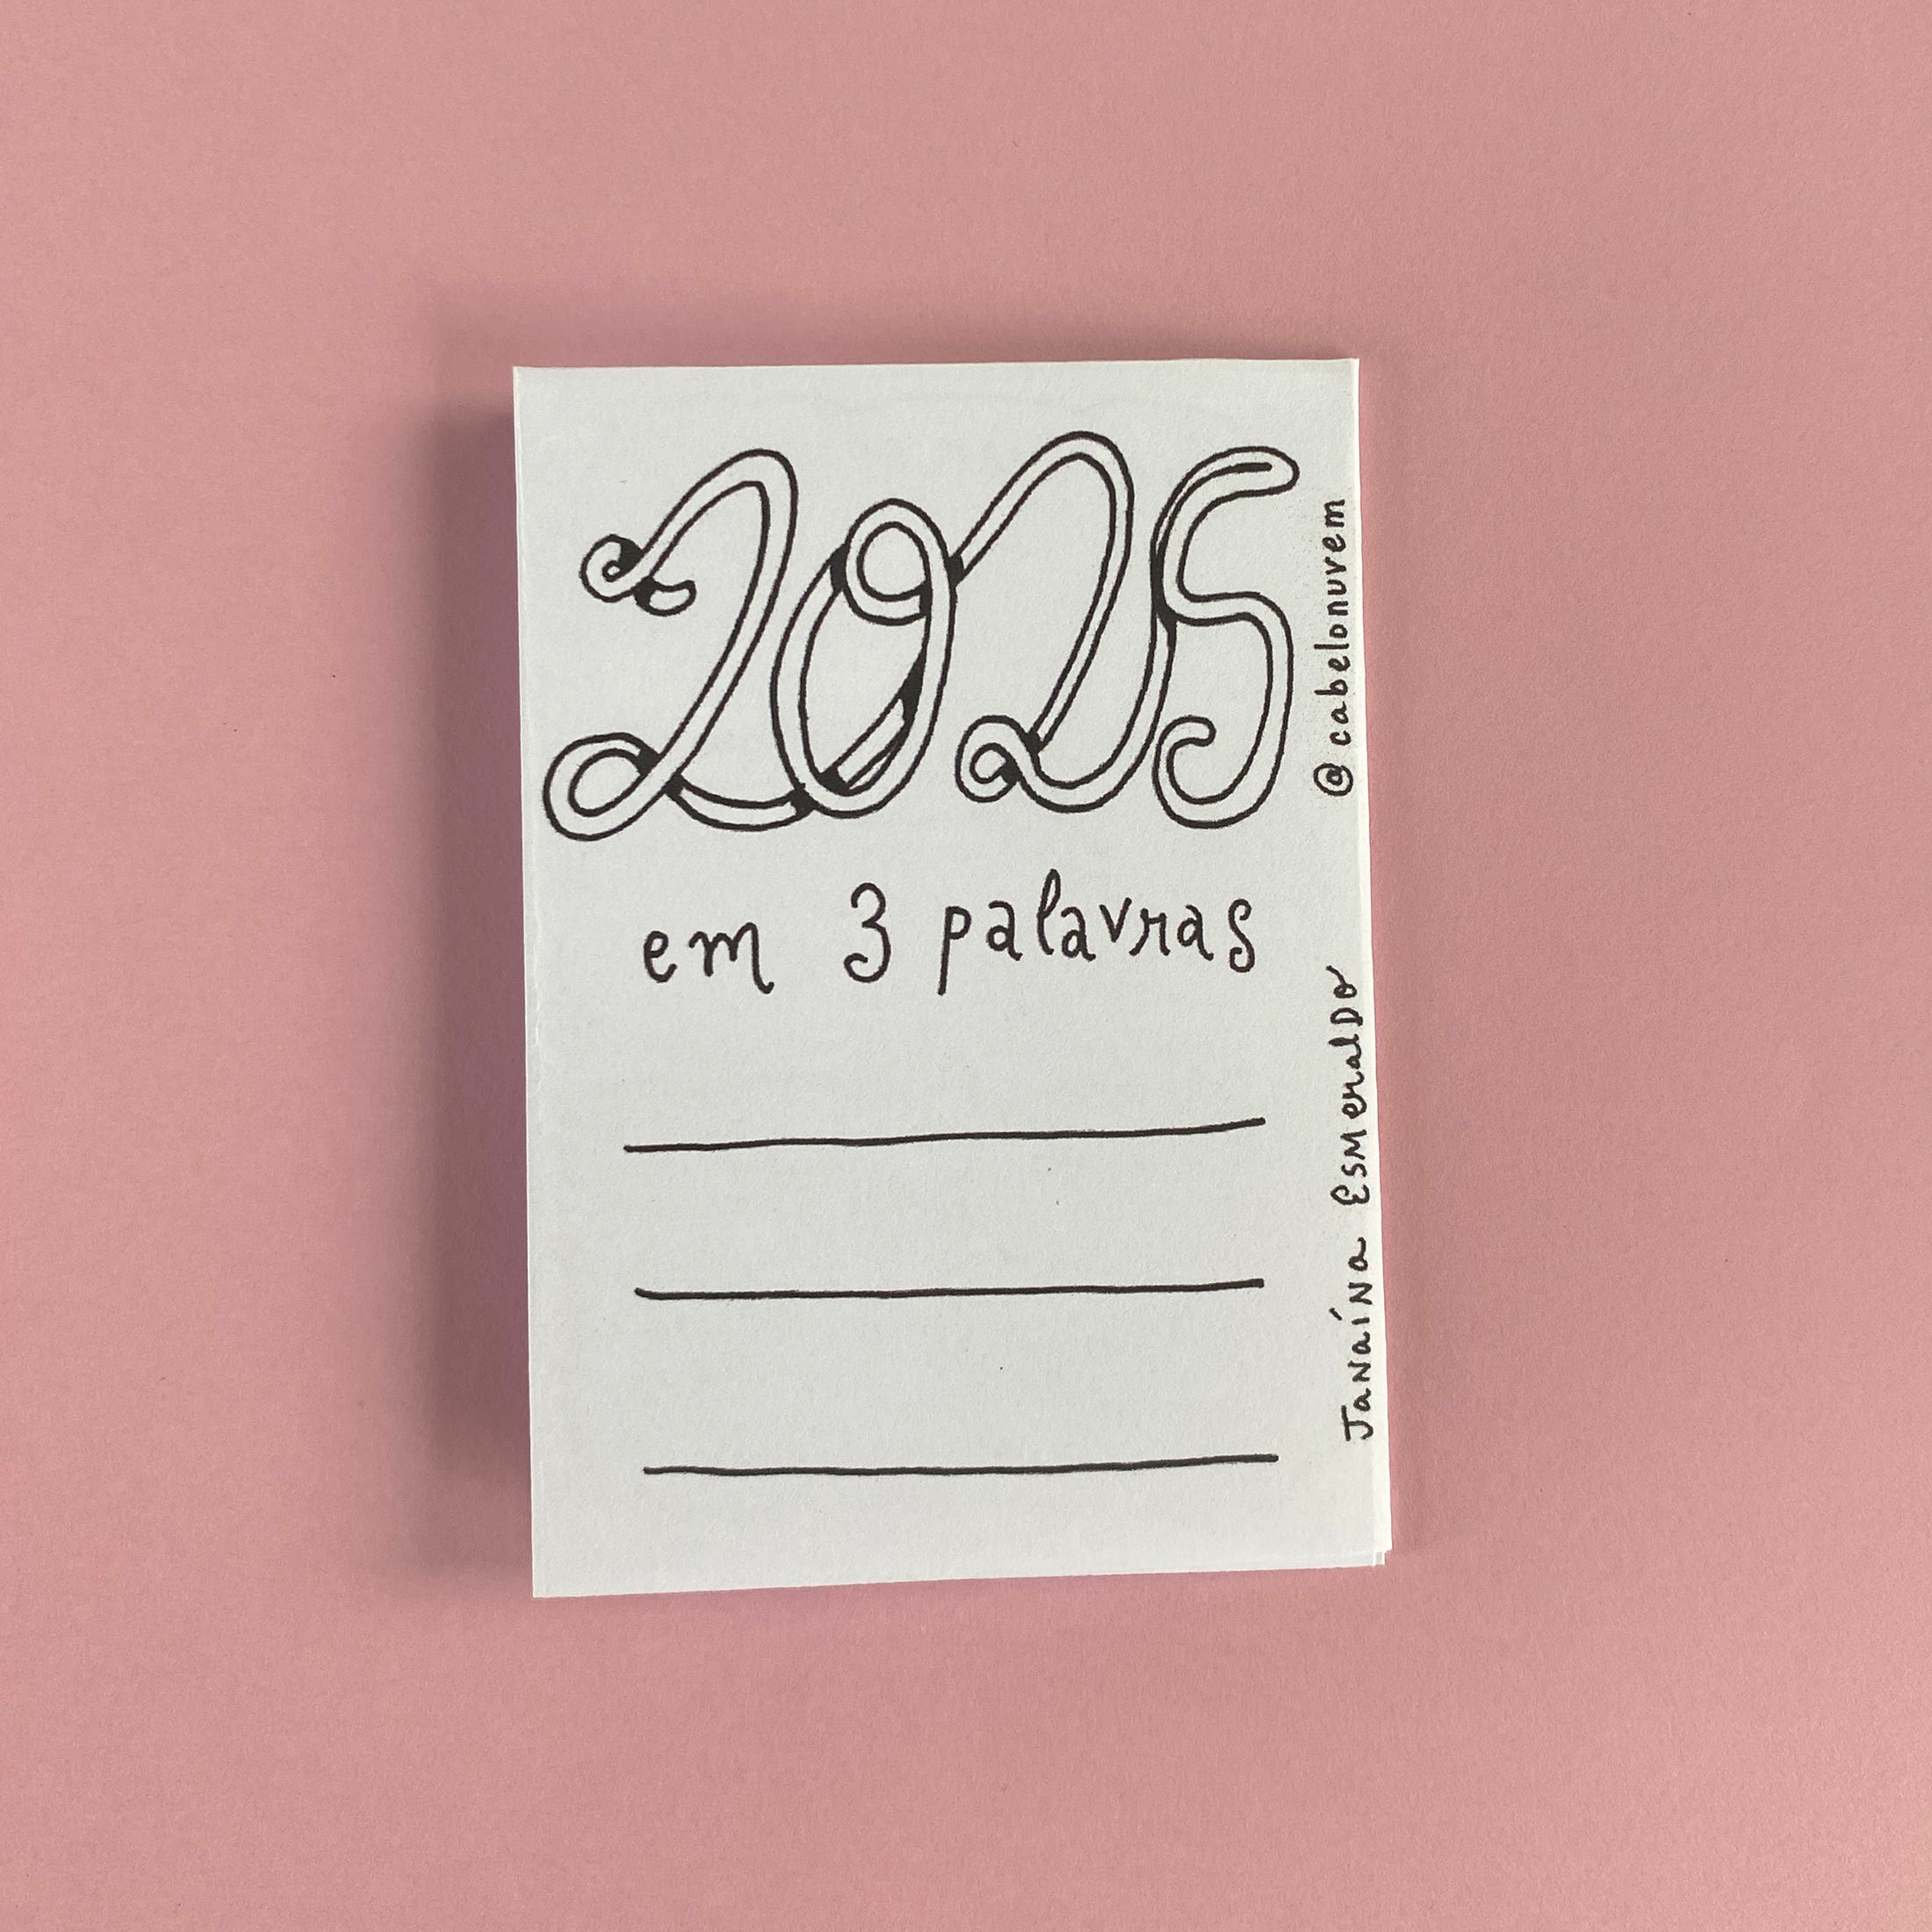 2025
em 3 palavras
@cabelonuvem
Janaína Esmeraldo